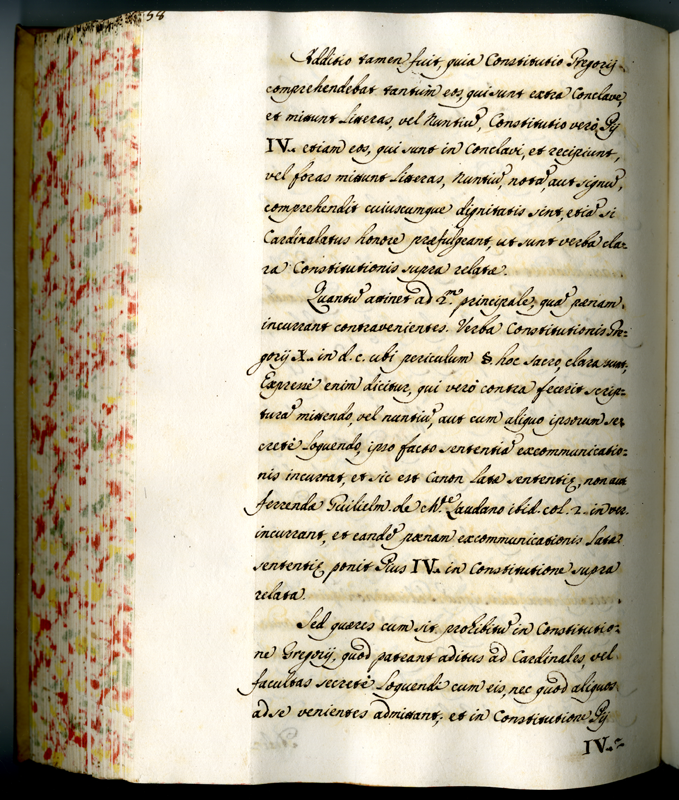 58
Additio tamen fuit, quia Constitutio Gregorij
comprehendebat tantum eos, qui sunt extra Conclave,
et mittunt Litteras, vel Nuntiũ, Constitutio verò Pij
IV. etiam eos, qui sunt in Conclavi, et recipiunt,
vel foras mittunt Litteras, Nuntiũ, notã, aut signũ,
comprehendit cuiuscumque dignitatis sint, etiã si
Cardinalatus honore præfulgeant, ut sunt verba cla-
ra Constitutionis supra relatæ.
Quantũ attinet ad 2.m principale, quã pœnam
incurrant contravenientes. Verba Constitutionis Gre-
gorij X. in d. c. ubi periculum § hoc sacro, clara sunt.
Expressè enim dicitur, qui verò contra fecerit scrip-
turã mittendo, vel nuntiũ, aut cum aliquo ipsorum se-
cretè loquendo, ipso facto sententiã excommunicatio-
nis incurrat, et sic est Canon latæ sententię, non aut
ferrenda Guilielm. de M.te Laudano ibid. col. 2. in ver.
incurrant, et eandẽ pœnam excommunicationis latæ
sententię ponit Pius IV. in Constitutione supra
relata.
Sed quæres cum sit prohibitũ in Constitutio-
ne Gregorij, quod pateant aditus ad Cardinales, vel
facultas secretè loquendi cum eis, nec quod aliquos
ad se venientes admittant; et in Constitutione Pij
IV.